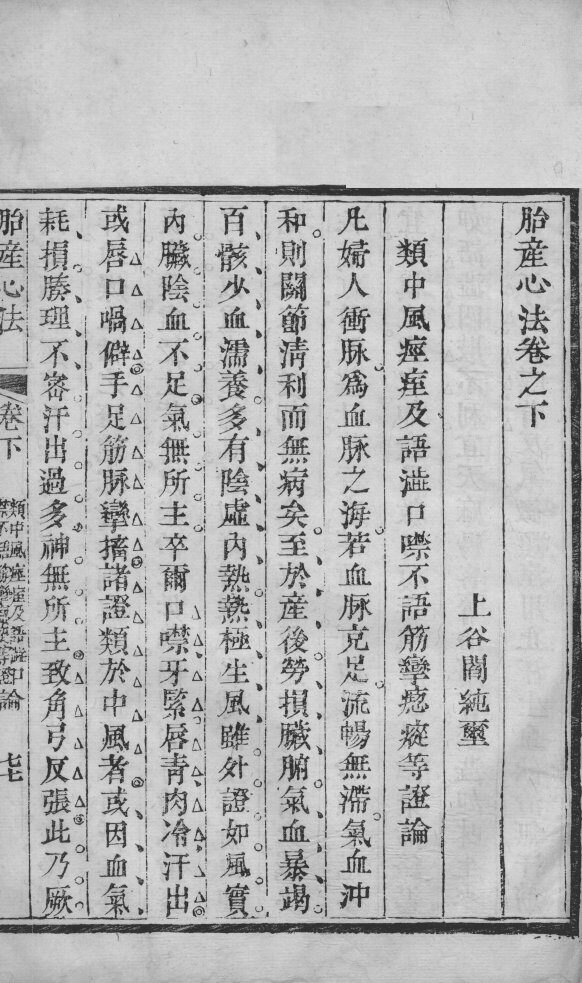 胎產心法卷之下
上谷閻純璽
類中風痙痓及語澁口噤不語筋攣瘛瘲等證論
凡婦人衝脉爲血脉之海若血脉充足流暢無滯氣血沖
和則關節清利而無病矣至於產後勞損臟腑氣血暴竭
百骸少血濡養多有陰虛內熱熱極生風雖外證如風實
內臟陰血不足氣無所主卒爾口噤牙緊唇青肉冷汗出
或唇口喎僻手足筋脉攣搐諸證類於中風者或因血氣
耗損腠理不密汗出過多神無所主致角弓反張此乃厥
胎產心法
卷下
類中風痙痓及語澁口
論
七七